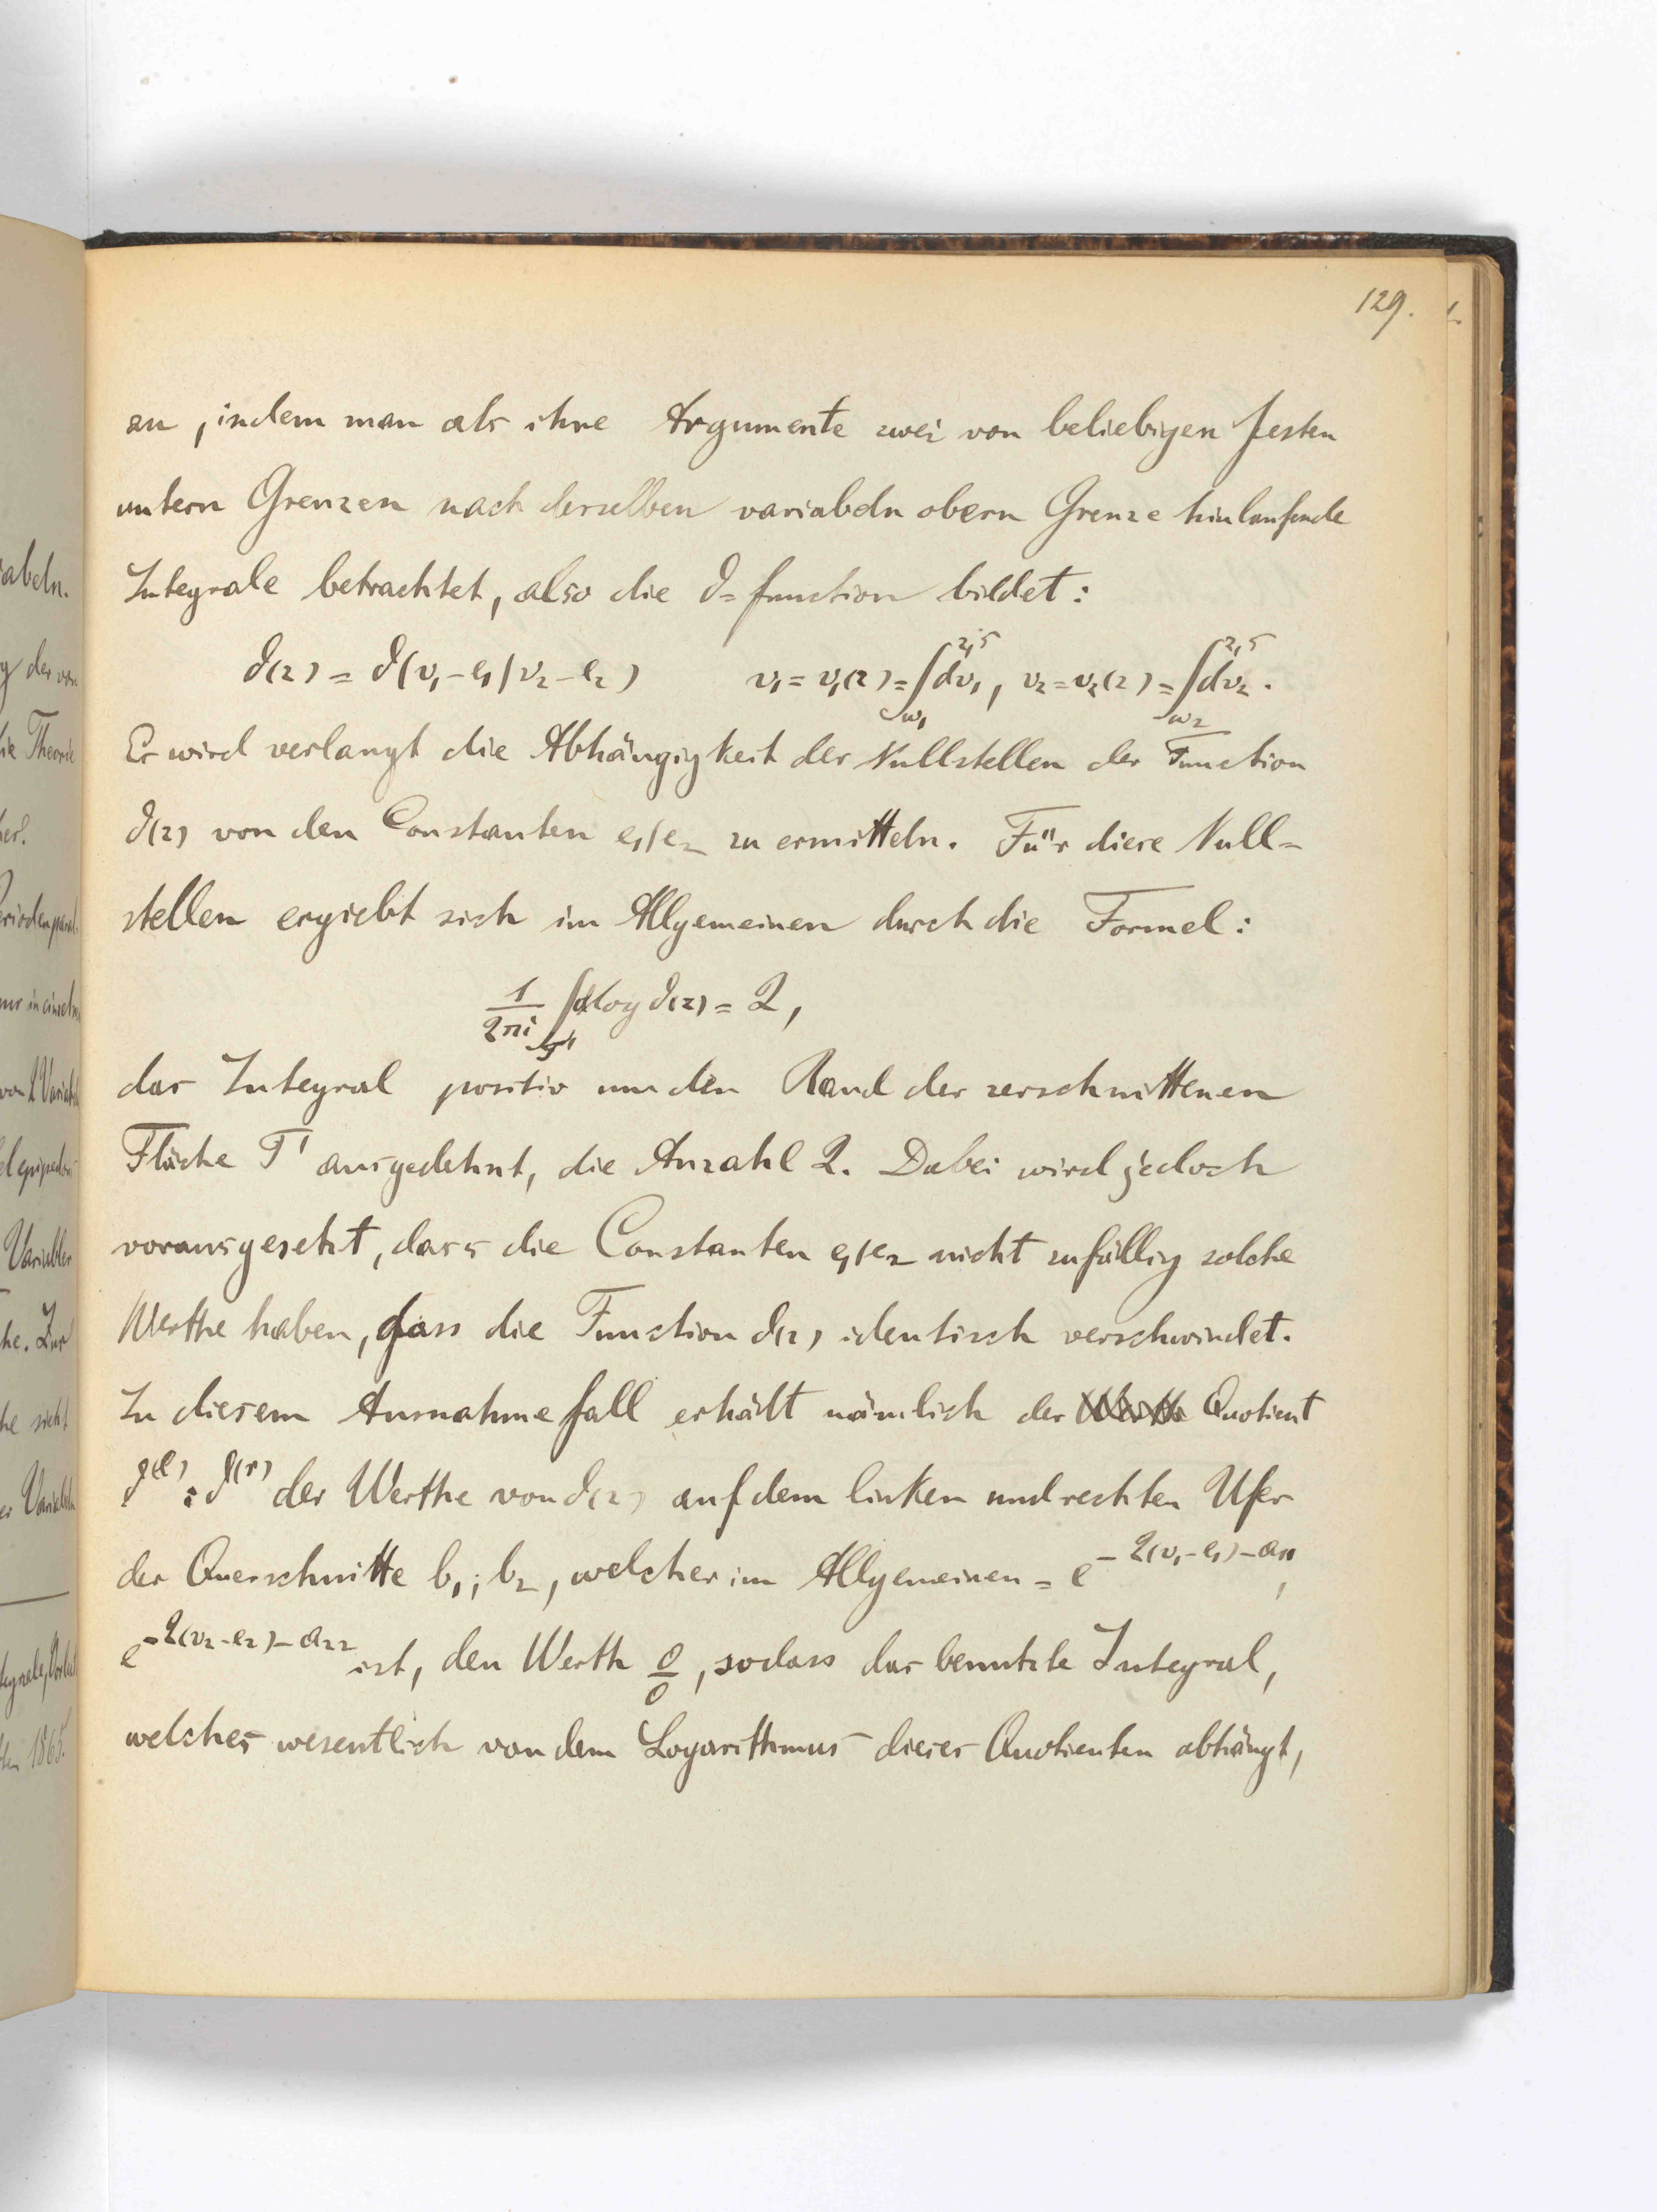 129.
an, indem man als ihre Argumente zwei von beliebigen festen
untern Grenzen nach derselben variabeln obern Grenze hinlaufende
Integrale betrachtet, also die ϑ=function bildet:
ϑ(z) = ϑ(v₁-e₁|v₂-e₂) v₁ = v₁(z) = ∫_{ω₁}^{z,s} dv₁, v₂ = v₂(z) = ∫_{ω₂}^{z,s} dv₂.
Es wird verlangt die Abhängigkeit der Nullstellen der Function
ϑ(z) von den Constanten e₁|e₂ zu ermitteln. Für diese Null=
stellen ergiebt sich im Allgemeinen durch die Formel:
1/2πi ∫_{T'} dlog ϑ(z) = 2,
das Integral positiv um den Rand der zerschnittenen
Fläche T' ausgedehnt, die Anzahl 2. Dabei wird jedoch
vorausgesetzt, dass die Constanten e₁|e₂ nicht zufällig solche
Werthe haben, dass die Function ϑ(z) identisch verschwindet.
In diesem Ausnahmefall erhält nämlich der Quotient
ϑ^(l) : ϑ^(r) der Werthe von ϑ(z) auf dem linken und rechten Ufer
der Querschnitte b₁; b₂, welcher im Allgemeinen = e^{-2(v₁-e₁)-a₁₁},
e^{-2(v₂-e₂)-a₂₂} ist, den Werth 0/0, sodass das benutzte Integral,
welches wesentlich von dem Logarithmus dieses Quotienten abhängt,
abeln.
g der von
ie Theorie
1865.